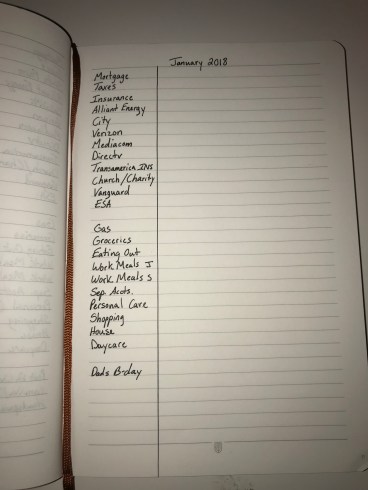 January 2018
Mortgage
Taxes
Insurance
Alliant Energy
City
Verizon
Mediacom
Directv
Transamerica INS
Church/Charity
Vanguard
ESA
Gas
Groceries
Eating Out
Work Meals J
Work Meals S
Sep. Accts.
Personal Care
Shopping
House
Daycare
Dads B-day